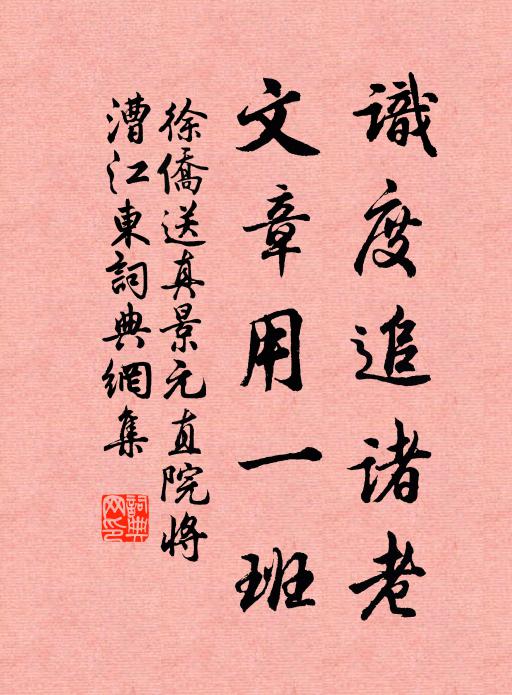 識度追諸老
文章用一班
徐僑送真景元直院將
漕江東詞典網集
詞典
网印